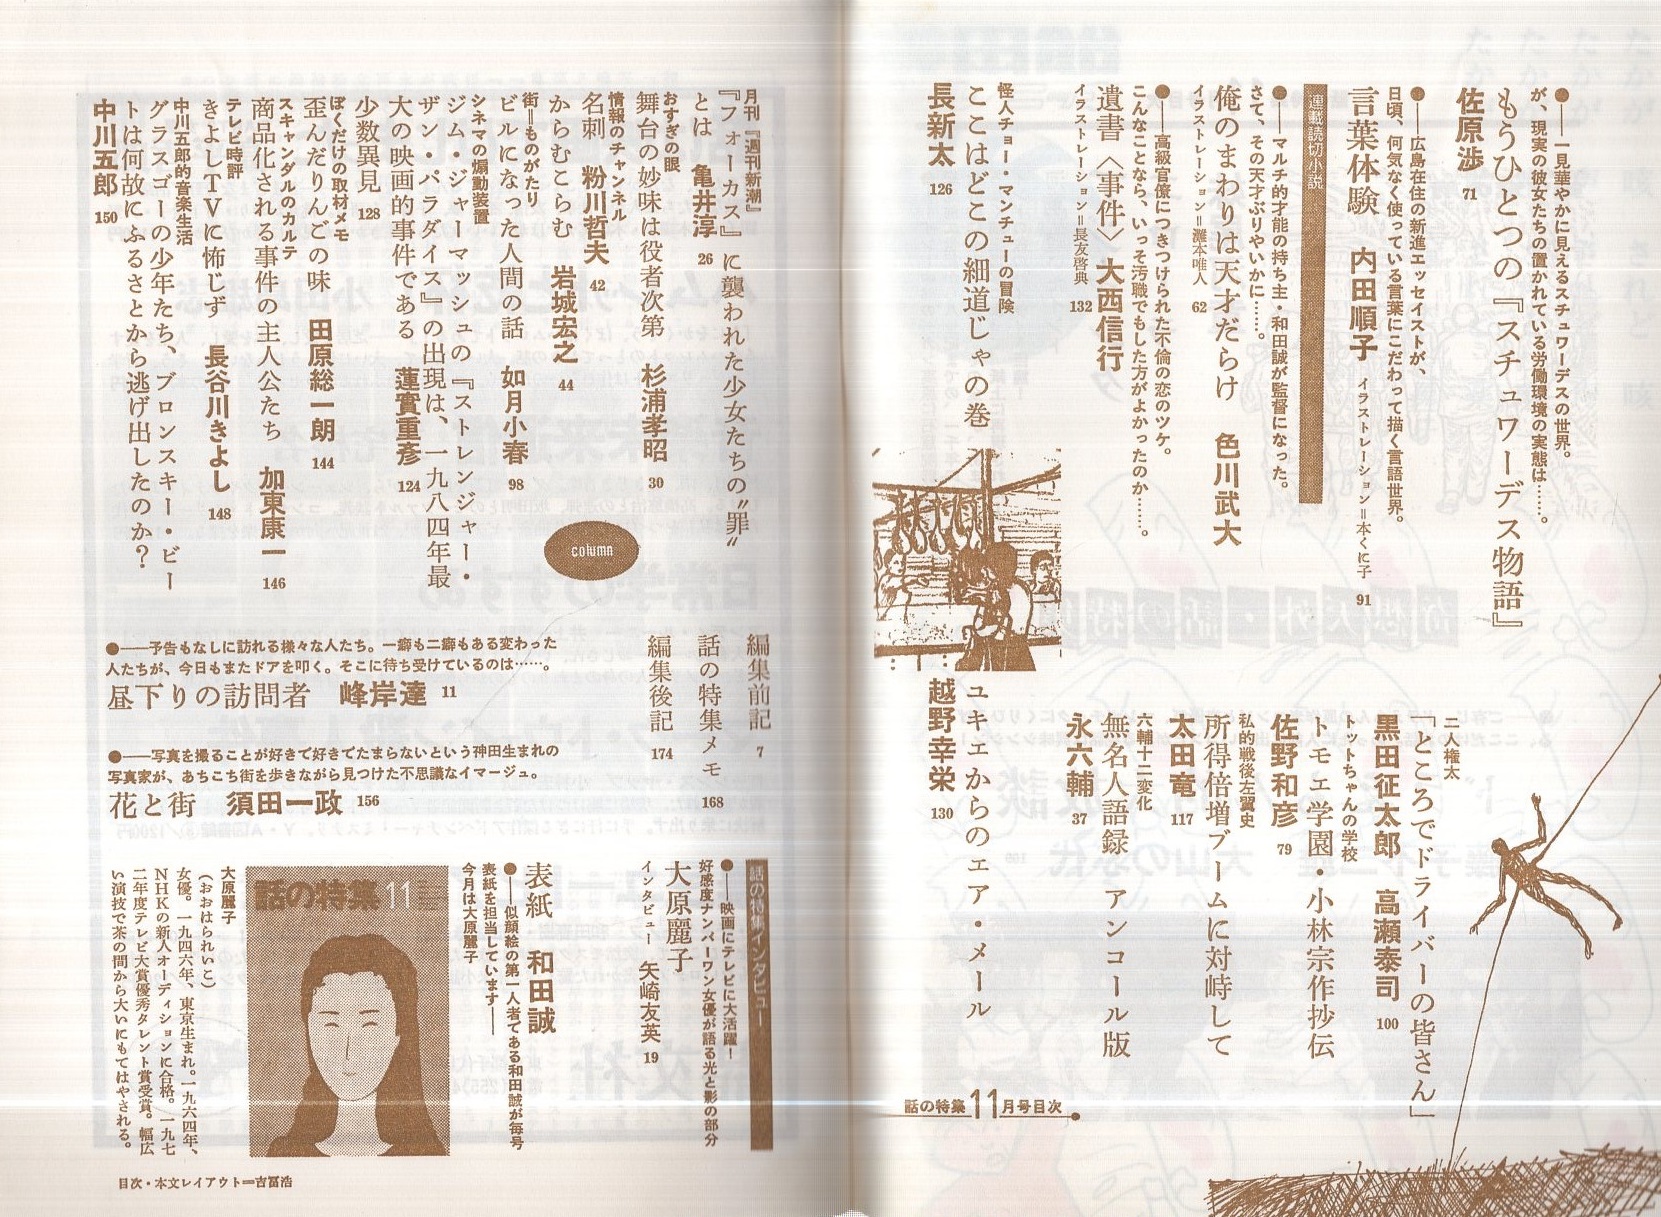 ●――一見華やかに見えるスチュワーデスの世界。
が、現実の彼女たちの置かれている労働環境の実態は……。
もうひとつの『スチュワーデス物語』
佐原渉 71
●――広島在住の新進エッセイストが、
日頃、何気なく使っている言葉にこだわって描く言語世界。
言葉体験 内田順子 イラストレーション=本くに子 91
連載読切小説
●――マルチ的才能の持ち主・和田誠が監督になった。
さて、その天才ぶりやいかに……。
俺のまわりは天才だらけ 色川武大
イラストレーション=灘本唯人 62
●――高級官僚につきつけられた不倫の恋のツケ。
こんなことなら、いっそ汚職でもした方がよかったのか……。
遺書〈事件〉大西信行
イラストレーション=長友啓典 132
怪人チョー・マンチューの冒険
ここはどこの細道じゃの巻
長新太 126
二人権太
「ところでドライバーの皆さん」
黒田征太郎 高瀬泰司 100
トットちゃんの学校
トモエ学園・小林宗作抄伝
佐野和彦 79
私的戦後左翼史
所得倍増ブームに対峙して
太田竜 117
六輔十二変化
無名人語録 アンコール版
永六輔 37
ユキエからのエア・メール
越野幸栄 130
話の特集11月号目次
月刊『週刊新潮』
『フォーカス』に襲われた少女たちの〝罪〟
とは 亀井淳 26
おすぎの眼
舞台の妙味は役者次第 杉浦孝昭 30
情報のチャンネル
名刺 粉川哲夫 42
からむこらむ 岩城宏之 44
街=ものがたり
ビルになった人間の話 如月小春 98
シネマの煽動装置
ジム・ジャーマッシュの『ストレンジャー・
ザン・パラダイス』の出現は、一九八四年最
大の映画的事件である 蓮實重彦 124
少数異見 128
ぼくだけの取材メモ
歪んだりんごの味 田原総一朗 144
スキャンダルのカルテ
商品化される事件の主人公たち 加東康一 146
テレビ時評
きよしTVに怖じず 長谷川きよし 148
中川五郎的音楽生活
グラスゴーの少年たち、ブロンスキー・ビー
トは何故にふるさとから逃げ出したのか?
中川五郎 150
column
編集前記 7
話の特集メモ 168
編集後記 174
●――予告もなしに訪れる様々な人たち。一癖も二癖もある変わった
人たちが、今日もまたドアを叩く。そこに待ち受けているのは……。
昼下りの訪問者 峰岸達 11
●――写真を撮ることが好きで好きでたまらないという神田生まれの
写真家が、あちこち街を歩きながら見つけた不思議なイマージュ。
花と街 須田一政 156
話の特集インタビュー
●――映画にテレビに大活躍!
好感度ナンバーワン女優が語る光と影の部分
大原麗子
インタビュー 矢崎友英 19
表紙 和田誠
●――似顔絵の第一人者である和田誠が毎号
表紙を担当しています――
今月は大原麗子
話の特集11
大原麗子
(おおはられいこ)
女優。一九四六年、東京生まれ。一九六四年、
NHKの新人オーディションに合格。一九七
二年度テレビ大賞優秀タレント賞受賞。幅広
い演技で茶の間から大いにもてはやされる。
目次・本文レイアウト=吉冨浩